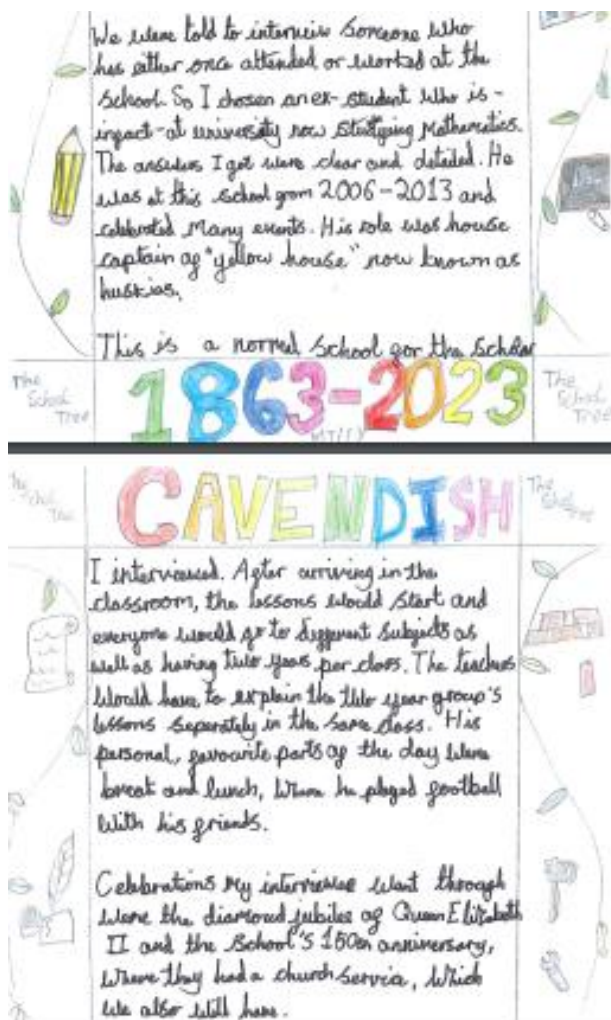 We were told to interview someone who
has either once attended or worked at the
school. So I chosen an ex-student who is -
infact - at university now studying Mathematics.
The answers I got were clear and detailed. He
was at this school from 2006-2013 and
celebrated many events. His role was house
captain of "yellow house" now known as
huskies.
This is a normal school for the scholar
The School Tree
1863-2023
The School Tree
The School Tree
CAVENDISH
The School Tree
I interviewed. After arriving in the
classroom, the lessons would start and
everyone would go to different subjects as
well as having two years per class. The teachers
would have to explain the two year group's
lessons seperately in the same class. His
personal, favourite parts of the day were
break and lunch, when he played football
with his friends.
Celebrations my interviewee went through
were the diamond jubilee of Queen Elizabeth
II and the school's 150th anniversary,
where they had a church service, which
we also will have.